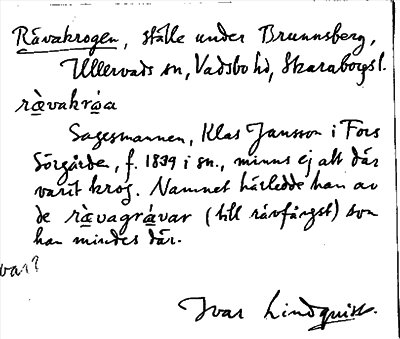 Rävakrogen, ställe under Brunnsberg,
Ullervads sn, Vadsbo hd, Skaraborgs l.
rävakråa
Sagesmannen, Klas Jansson i Fors
Sörgården, f. 1839 i sn., minns ej att där
varit krog. Namnet härledde han av
de rävagrävar (till rävfångst) som
han mindes där.
var?
Ivar Lindquist.